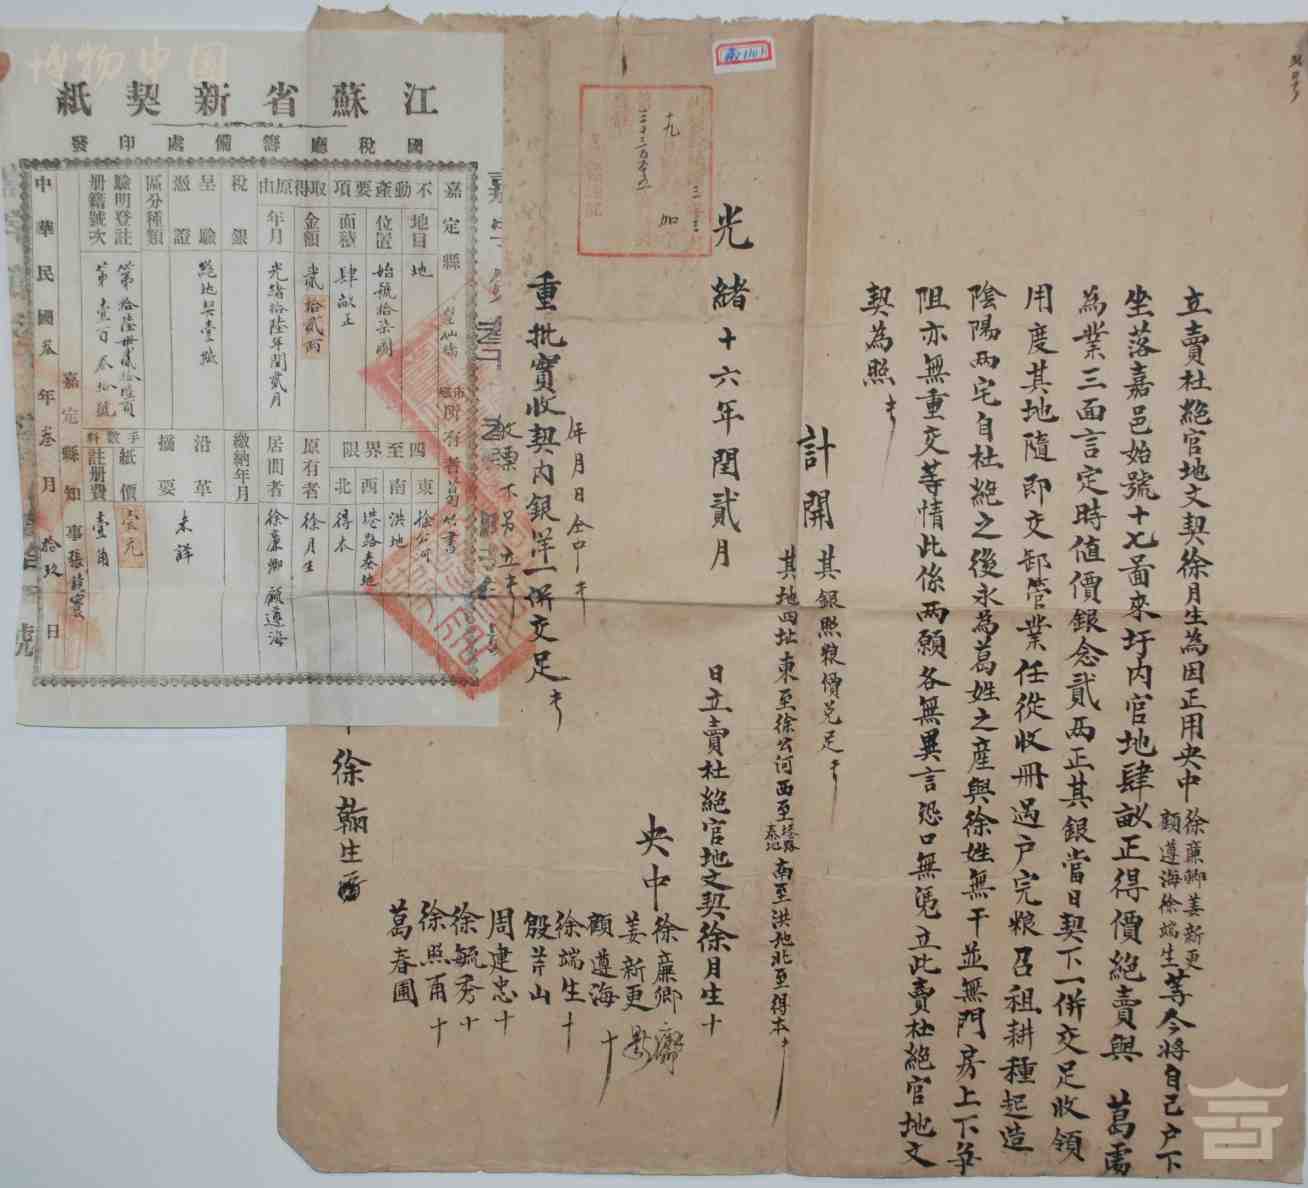 立賣杜絕官地文契徐月生為因正用央中徐廉卿姜新更顧遵海徐端生等今將自己戶下
坐落嘉邑始號十七啚來圩內官地肆畝正得價絕賣與 葛處
為業三面言定時值價銀念貳兩正其銀當日契下一併交足收領
用度其地隨即交卸管業任從收冊過戶完粮召租耕種起造
陰陽兩宅自杜絕之後永為葛姓之產與徐姓無干並無門房上下爭
阻亦無重交等情此係兩願各無異言恐口無凴立此賣杜絕官地文
契為照
計開
其銀照粮價兌足
其地四址東至徐公河西至塔路秦地南至洪地北至得本
光緒十六年閏貳月 日立賣杜絕官地文契徐月生十
央中
徐廉卿
姜新更
顧遵海十
徐端生十
殷芹山
周建忠十
徐毓秀十
徐照甫十
葛春圃
年月日仝中
重批實收契內銀洋一併交足
不另立
徐翰生
博物中国
江蘇省新契紙
國稅廳籌備處印發
嘉定縣
所有者葛
不動產要項
地目 地
位置 始號拾柒啚
面積 肆畝正
取得原由
金額 貳拾貳兩
年月 光緒拾陸年閏貳月
稅銀
呈驗憑證 絕地契壹紙
區分種類
驗明登註冊籍號次 第拾陸冊貳拾陸頁 第壹百叁拾號
四至界限
東 徐公河
南 洪地
西 塔路秦地
北 得本
原有者 徐月生
居間者 徐廉卿 顧遵海
繳納年月
沿革摘要 未詳
手數料
紙價 壹元
註册費 壹角
嘉定縣知事
中華民國叁年叁月拾玖日